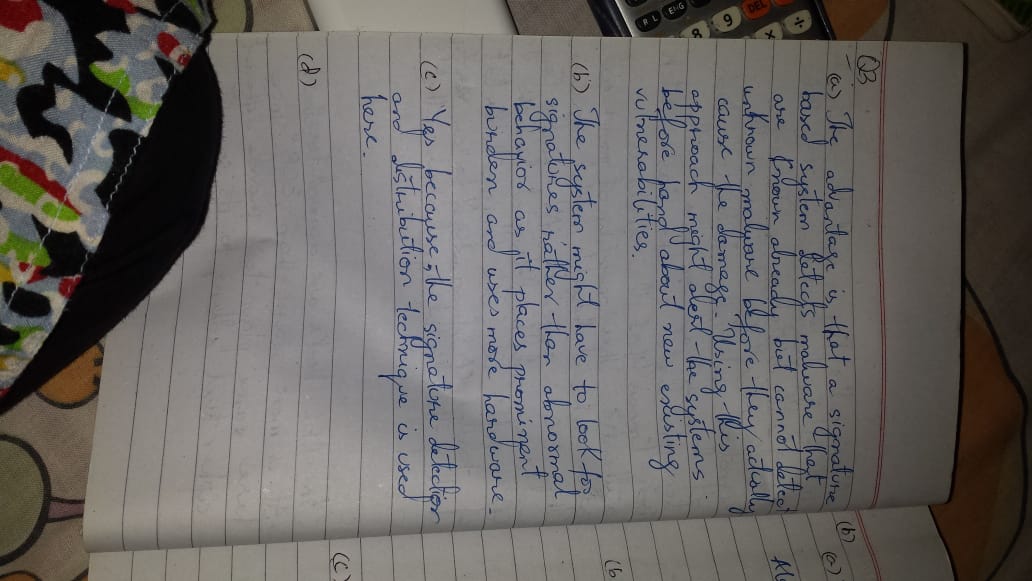 Q3
(a) The advantage is that a signature
based system detects malware that
are known already but cannot detect
unknown malware before they actually
cause the damage. Using this
approach might alert the systems
before hand about new existing
vulnerabilities.
(b) The system might have to look for
signatures rather than abnormal
behavior as it places prominent
burden and uses more hardware.
(c) Yes because, the signature detection
and distribution technique is used
here.
(d)
(b)
(a)
(b
(c)
R L ENG
8 9 DEL
x ÷